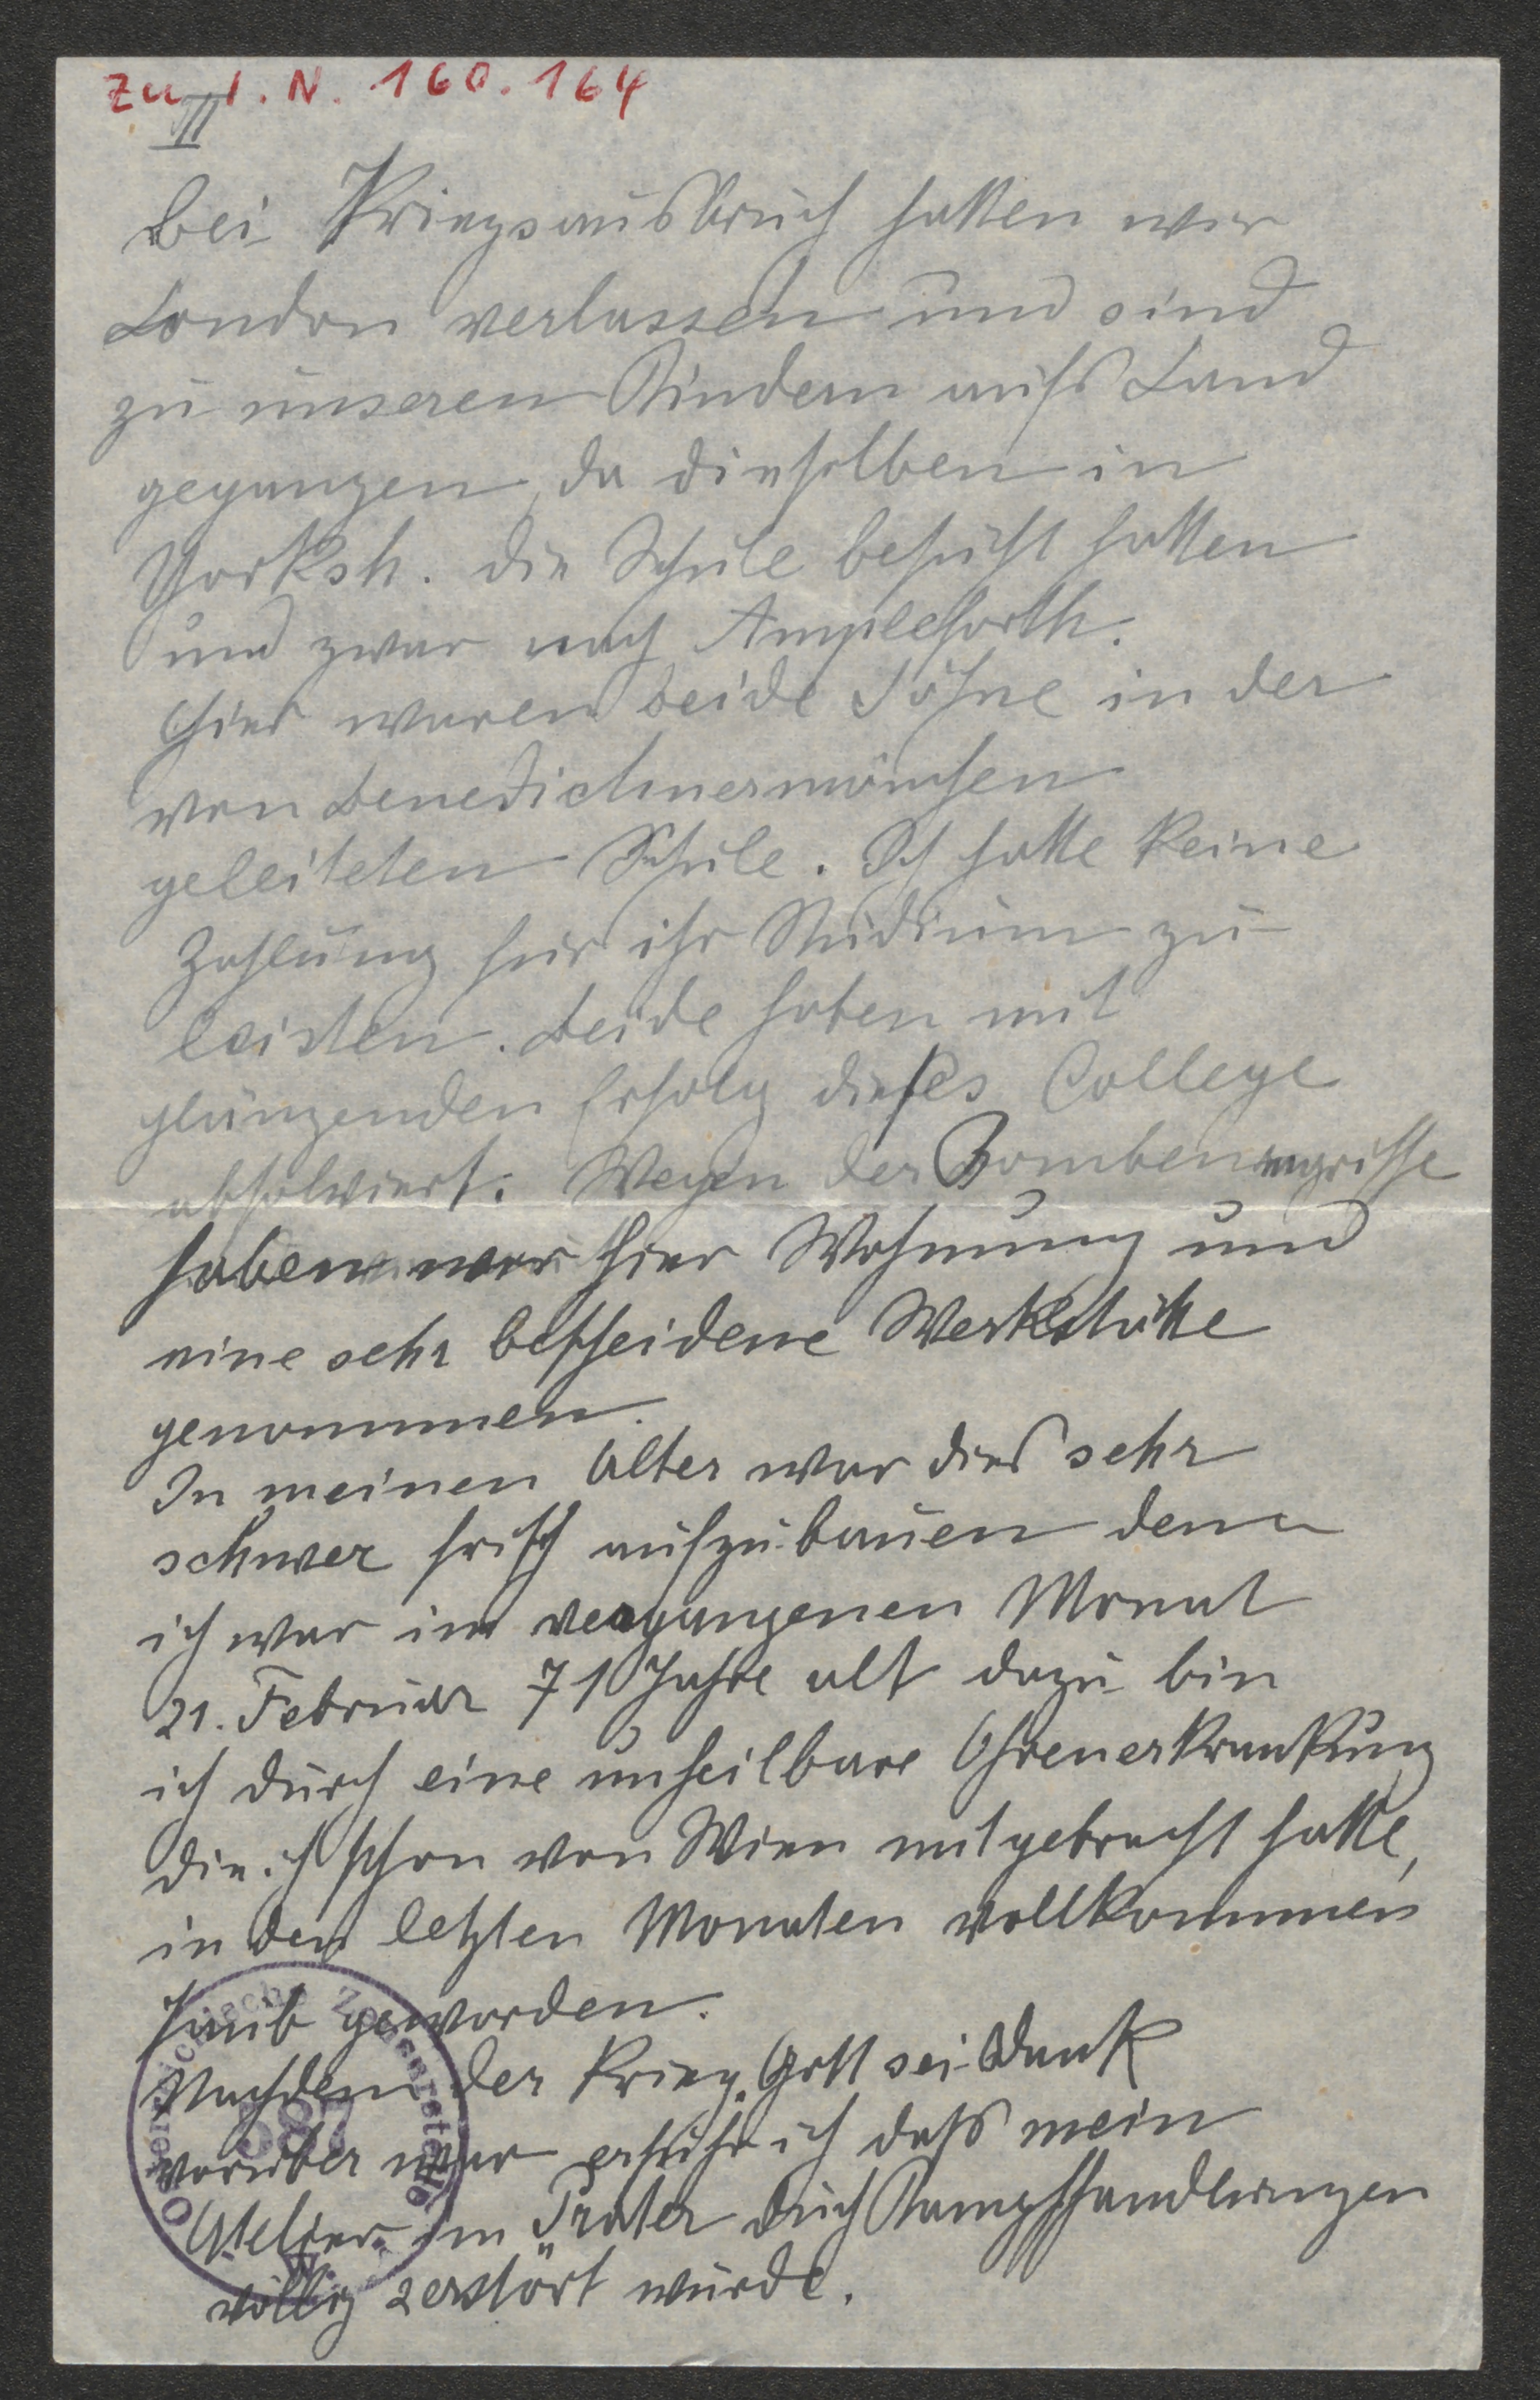 Zu I. N. 160.164
II
Bei Kriegsausbruch hatten wir
London verlassen und sind
zu unseren Kindern aufs Land
gegangen, da dieselben in
Yorksh. die Schule besucht hatten
und zwar nach Ampleforth.
Hier waren beide Söhne in der
von Benedictinermönchen
geleiteten Schule. Ich hatte keine
Zahlung für ihr Studium zu
leisten. Beide haben mit
glänzenden Erfolg dieses College
absolviert. Wegen der Bombenangriffe
haben wir hier Wohnung und
eine sehr bescheidene Werkstätte
genommen.
In meinen Alter war dies sehr
schwer frisch aufzubauen denn
ich war im vergangenen Monat
21. Februar 71 Jahre alt dazu bin
ich durch eine unheilbare Ohrenerkrankung
die ich schon von Wien mitgebracht hatte,
in den letzten Monaten vollkommen
taub geworden.
Nachdem der Krieg Gott sei Dank
vorüber war erfuhr ich daß mein
Atelier im Prater durch Kampfhandlungen
völlig zerstört wurde.
Österreichische Zensurstelle
387